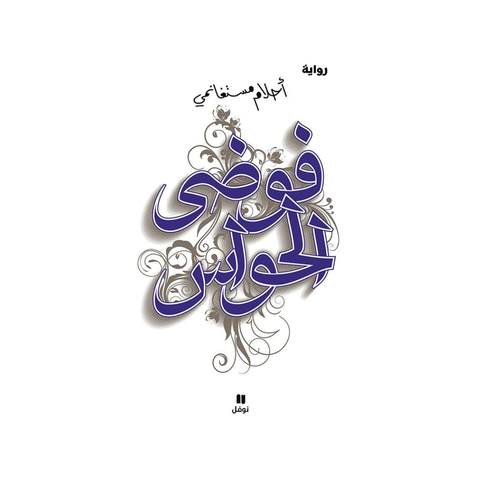 رواية
أحلام مستغانمي
فوضى
الحواس
نوفل